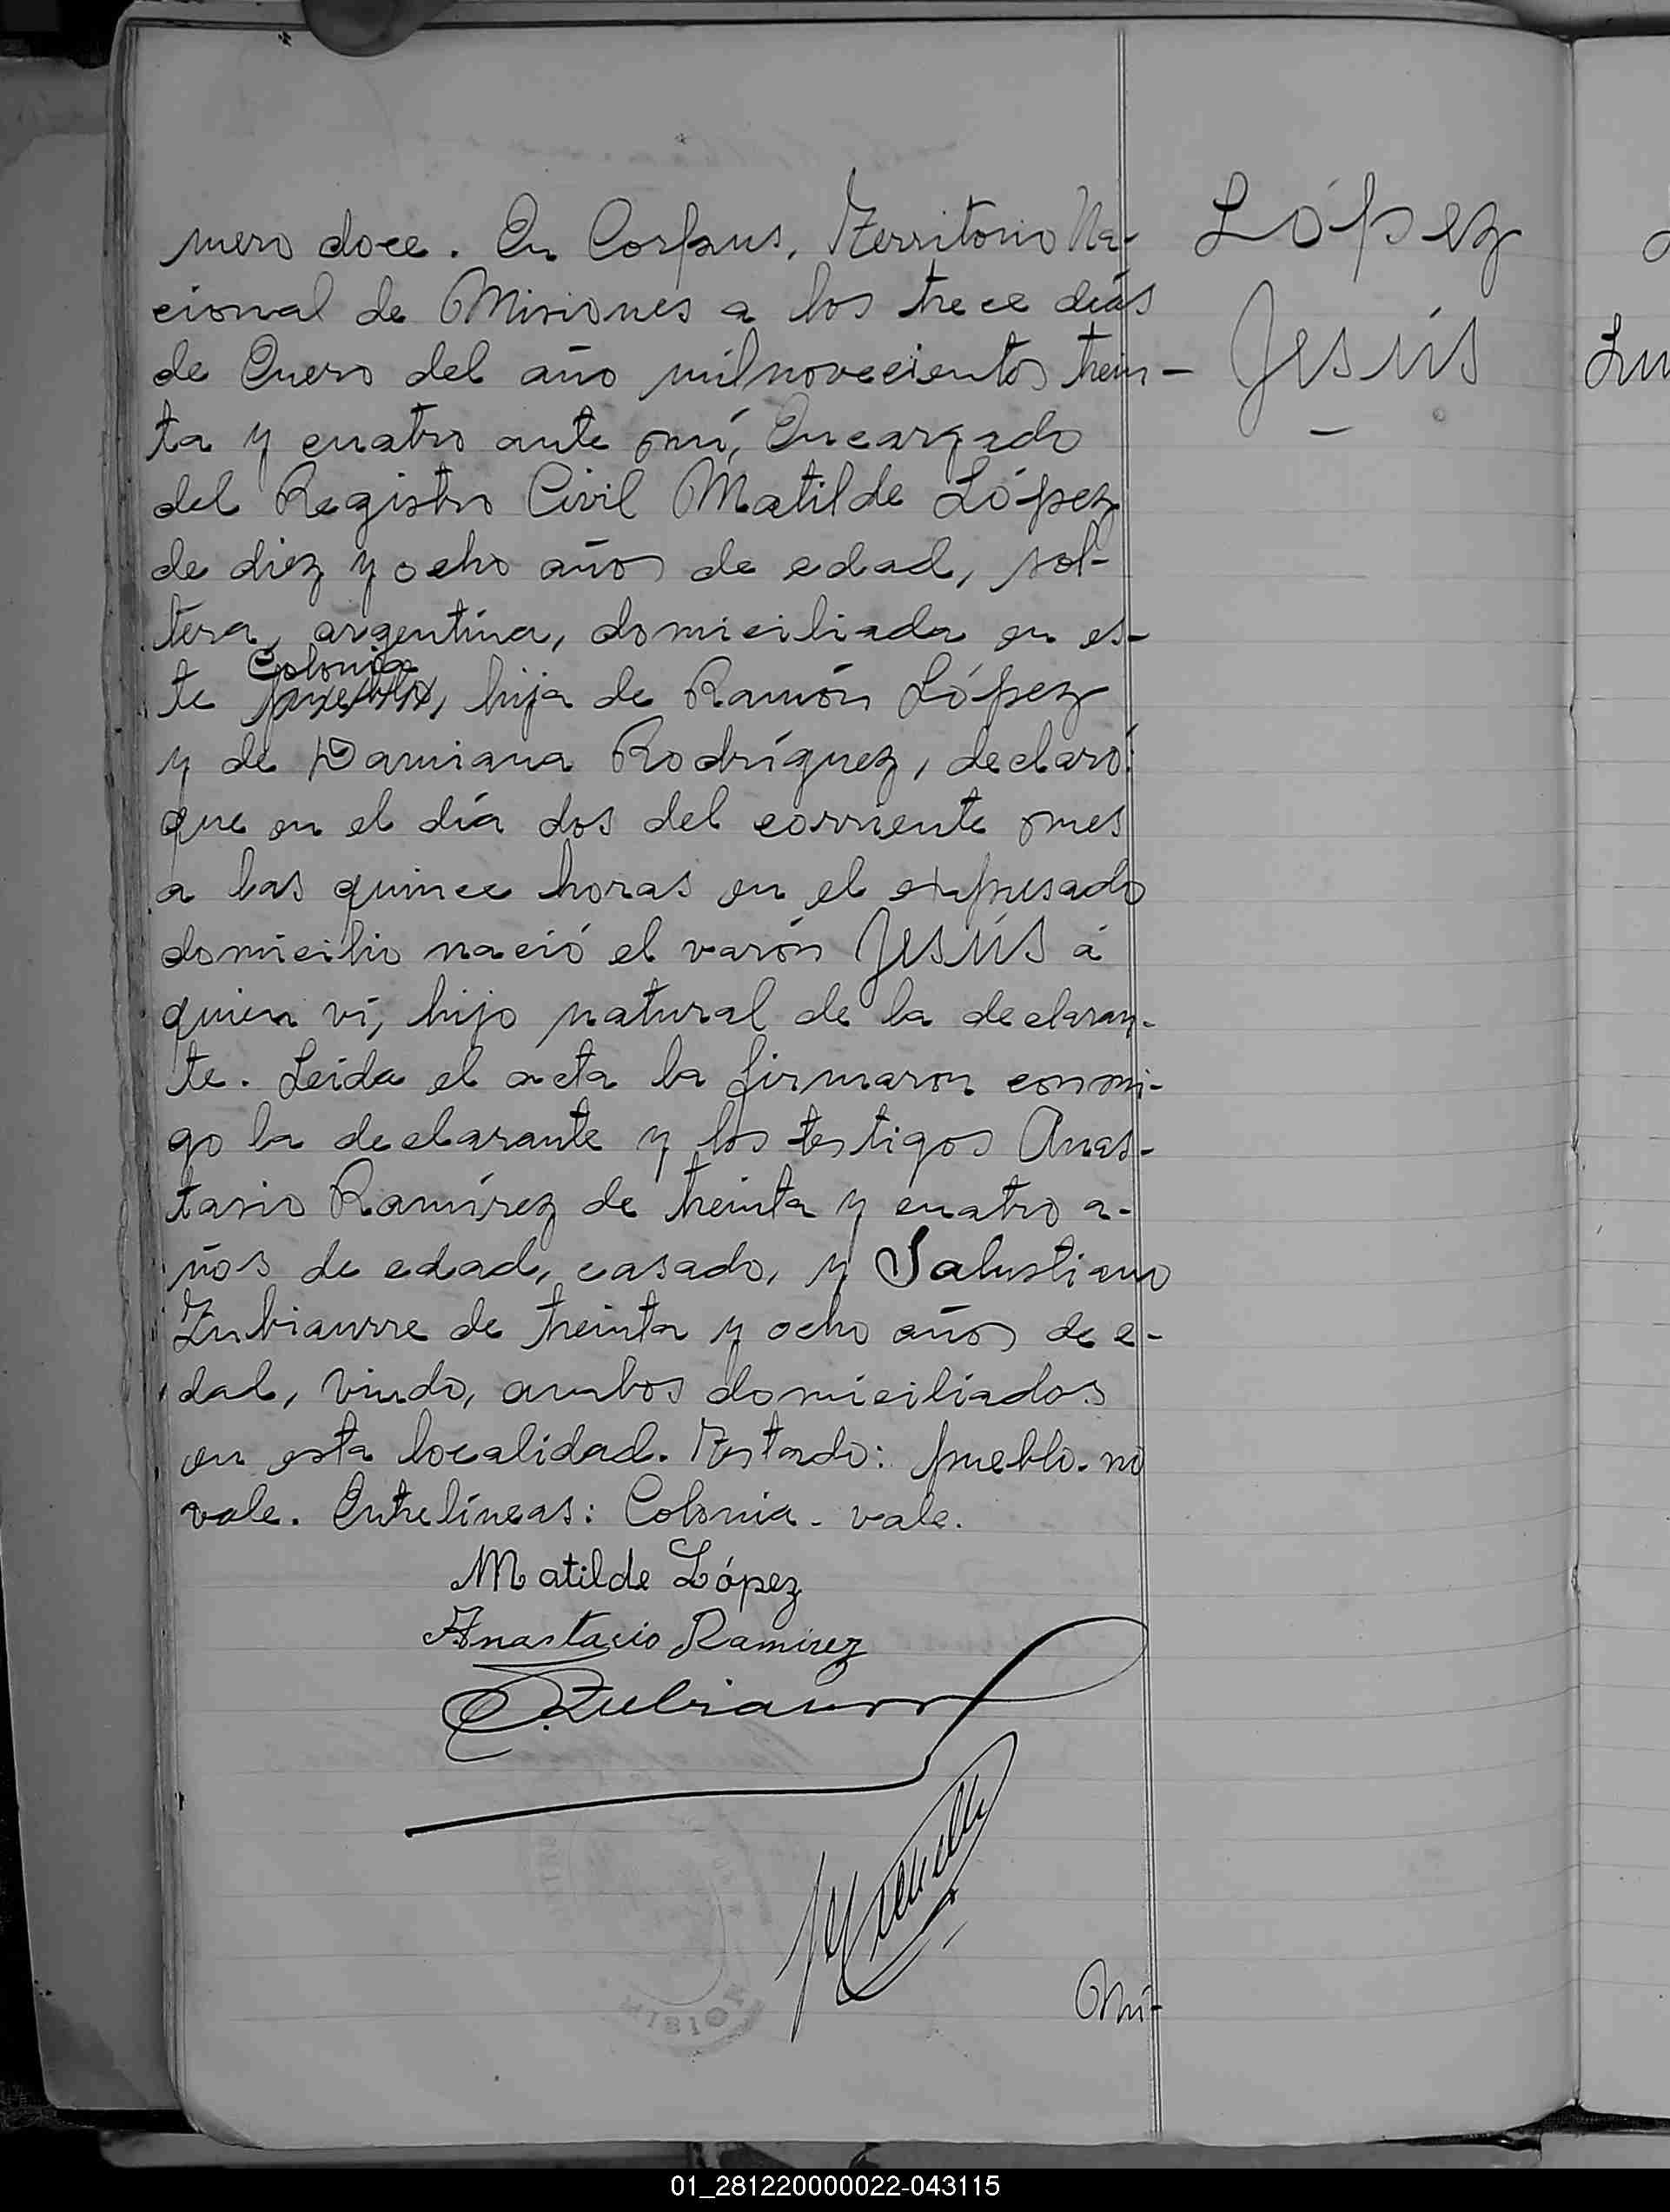 mero doce. En Corpus, Territorio Na-
cional de Misiones a los trece días
de Enero del año mil novecientos trein-
ta y cuatro ante mí, Encargado
del Registro Civil Matilde López
de diez y ocho años de edad, sol-
tera, argentina, domiciliada en es-
Colonia
te pueblo, hija de Ramón López
y de Damiana Rodríguez, declaró:
que en el día dos del corriente mes
a las quince horas en el expresado
domicilio nació el varón Jesús á
quien ví, hijo natural de la declaran-
te. Leida el acta la firmaron conmi-
go la declarante y los testigos Anas-
tasio Ramírez de treinta y cuatro a-
ños de edad, casado, y Salustiano
Zubiaurre de treinta y ocho años de e-
dad, viudo, ambos domiciliados
en esta localidad. Testado: pueblo. no
vale. Entrelíneas: Colonia. vale.
Matilde López
Anastacio Ramirez
S. Zubiaurr
Nú-
López
Jesús
MISION
01_281220000022-043115